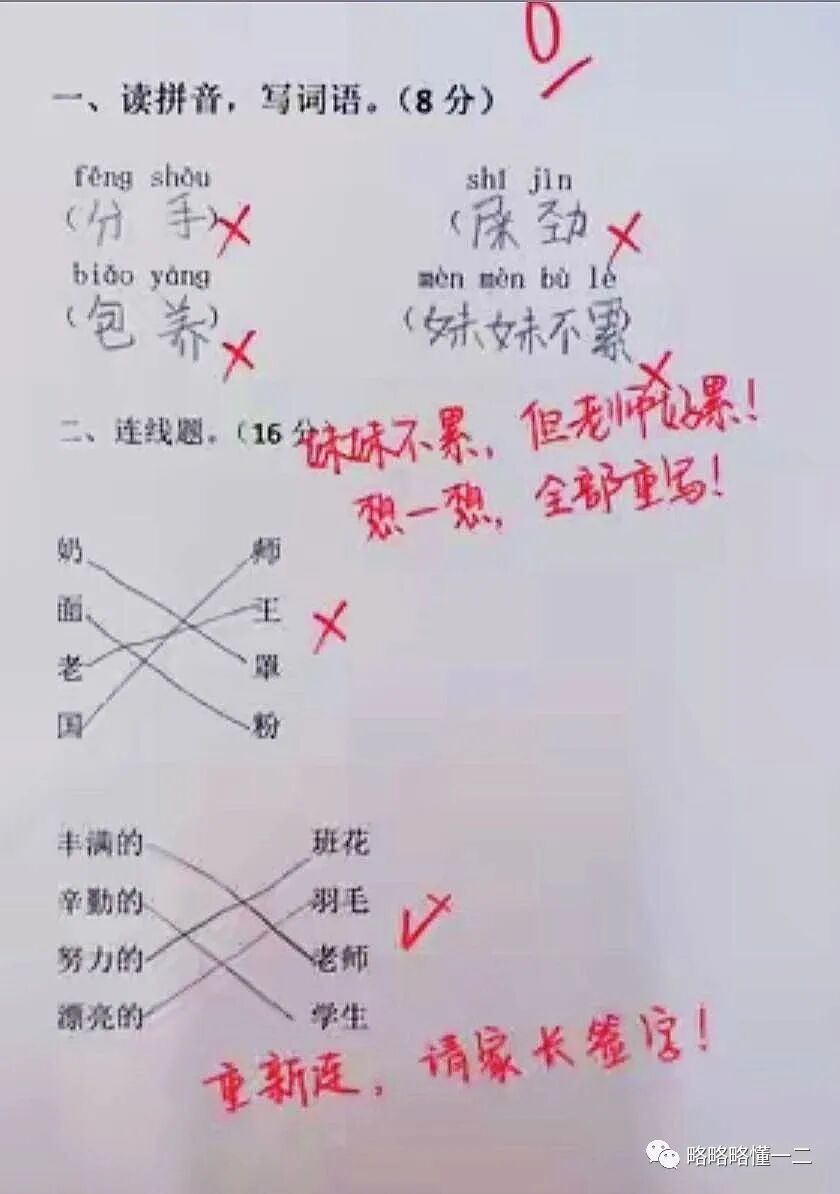 0
一、读拼音，写词语。（8 分）
fēng shōu shǐ jìn
（分 手） （屎 劲）
biǎo yáng mèn mèn bù lè
（包 养） （妹妹不累）
二、连线题。（16 分）
妹妹不累，但老师好累！
想一想，全部重写！
奶 师
面 王
老 罩
国 粉
丰满的 班花
辛勤的 羽毛
努力的 老师
漂亮的 学生
重新连，请家长签字！
略略略懂一二